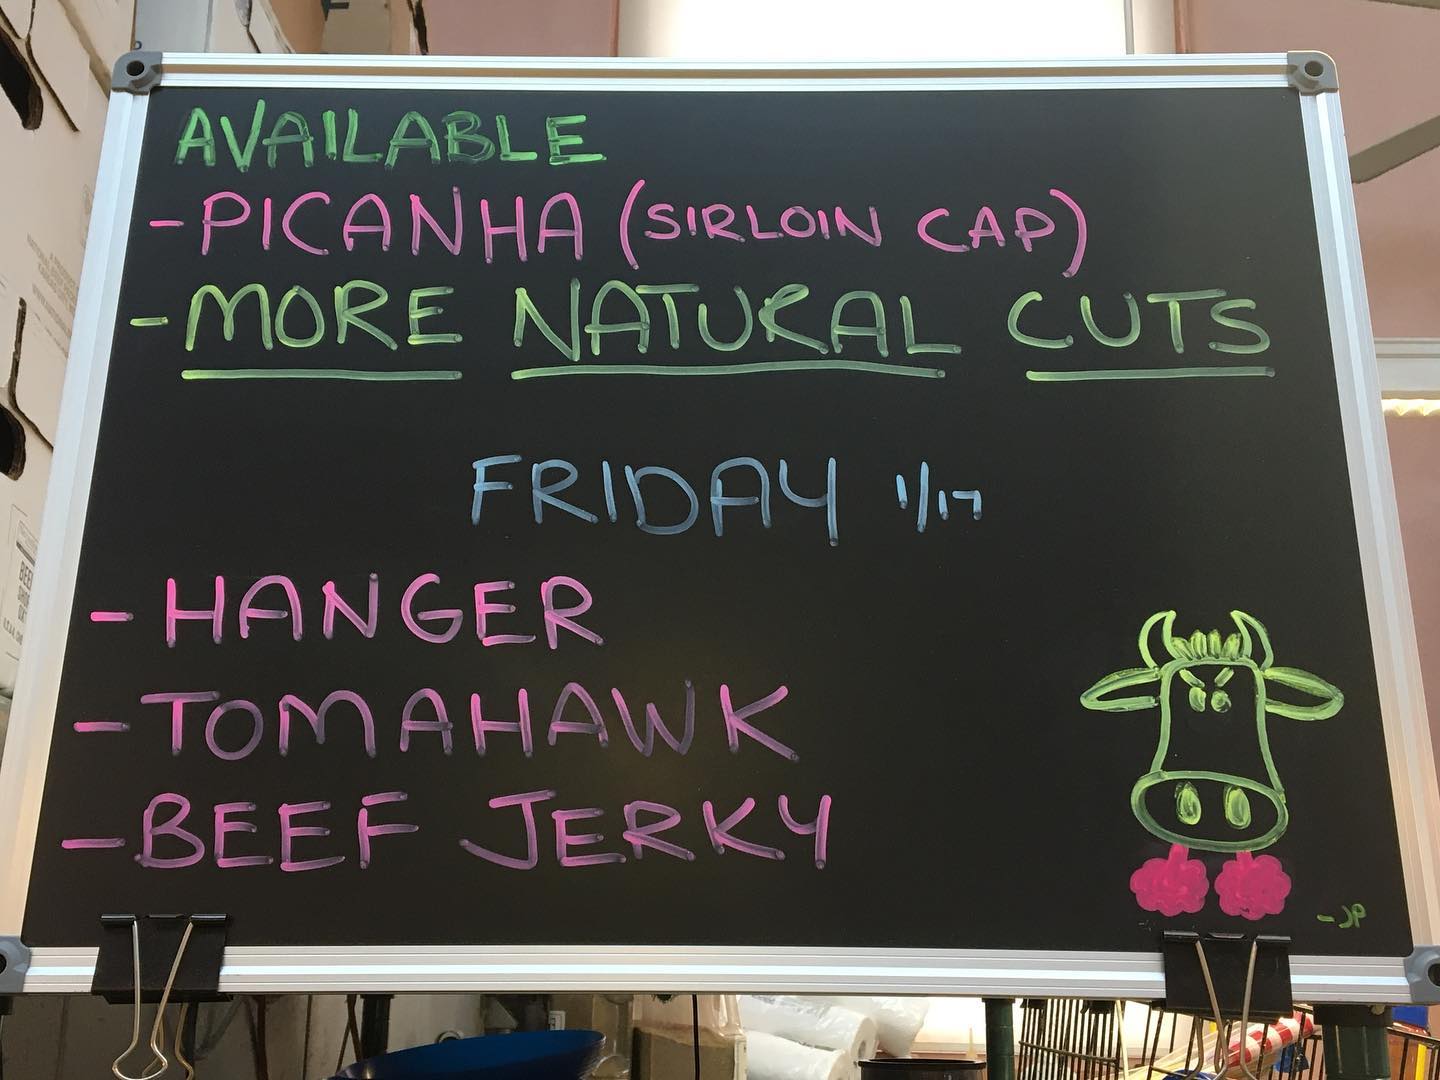 AVAILABLE
-PICANHA (SIRLOIN CAP)
-MORE NATURAL CUTS
FRIDAY 1/17
-HANGER
-TOMAHAWK
-BEEF JERKY
-JP